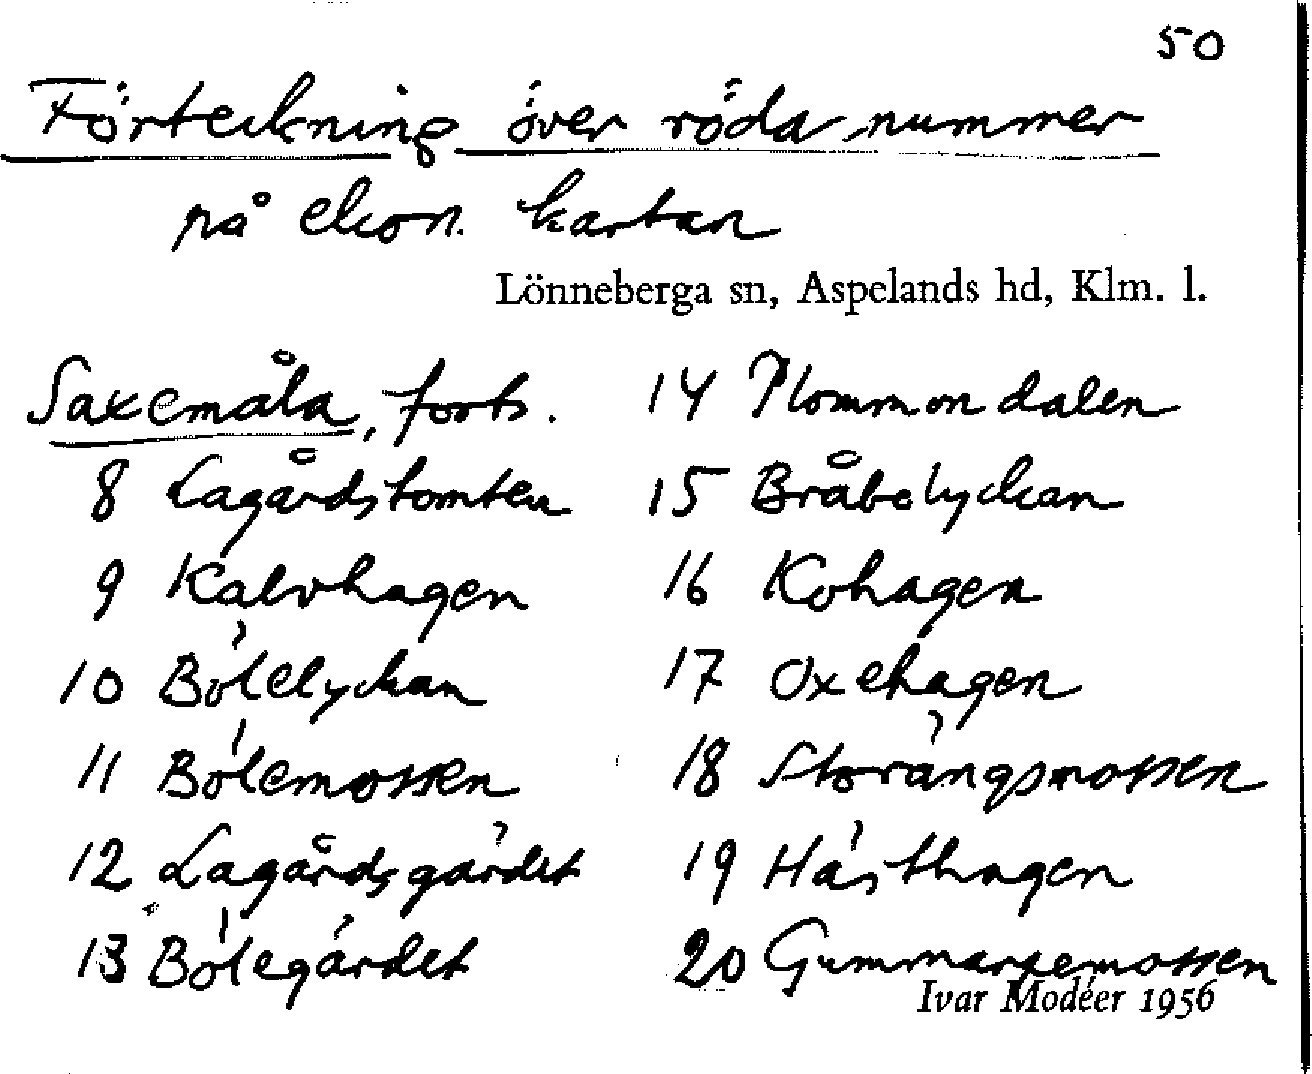 50
Förteckning över röda nummer
på ekon. kartan
Lönneberga sn, Aspelands hd, Klm. l.
Saxemåla, forts.
8 Lagårdstomten
9 Kalvhagen
10 Bölelyckan
11 Bölemossen
12 Lagårdsgärdet
13 Bölegärdet
14 Plommondalen
15 Bråbelyckan
16 Kohagen
17 Oxehagen
18 Storängsmossen
19 Hästhagen
20 Gummarpemossen
Ivar Modéer 1956